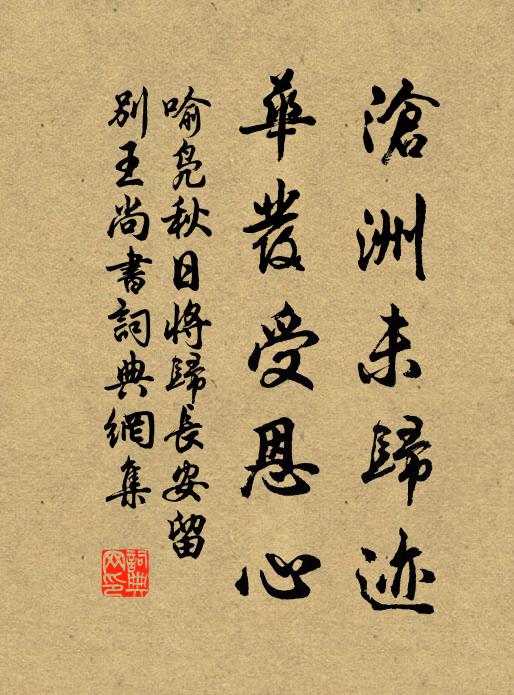 滄洲未歸迹
華發受恩心
喻凫秋日將歸長安留
別王尚書詞典網集
詞典
网印